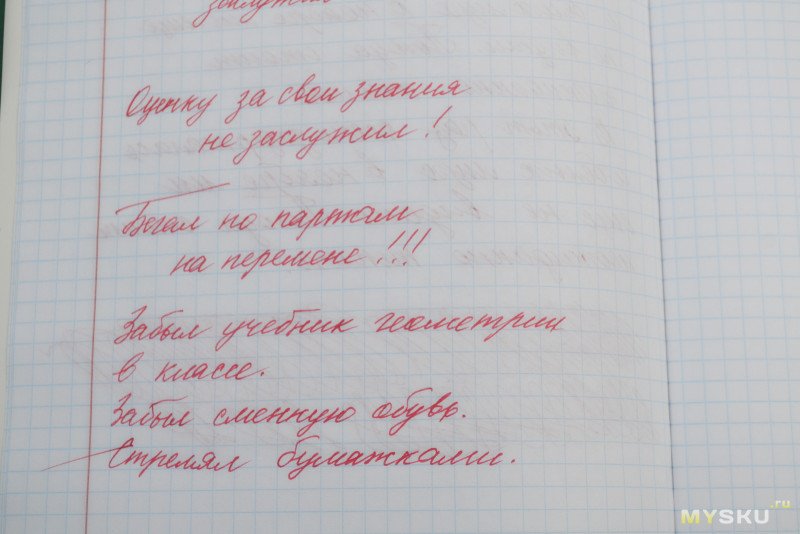 заслужил
Оценку за свои знания
не заслужил!
Бегал по партам
на перемене!!!
Забыл учебник геометрии
в классе.
Забыл сменную обувь.
Стрелял бумажками.
MYSKU.ru